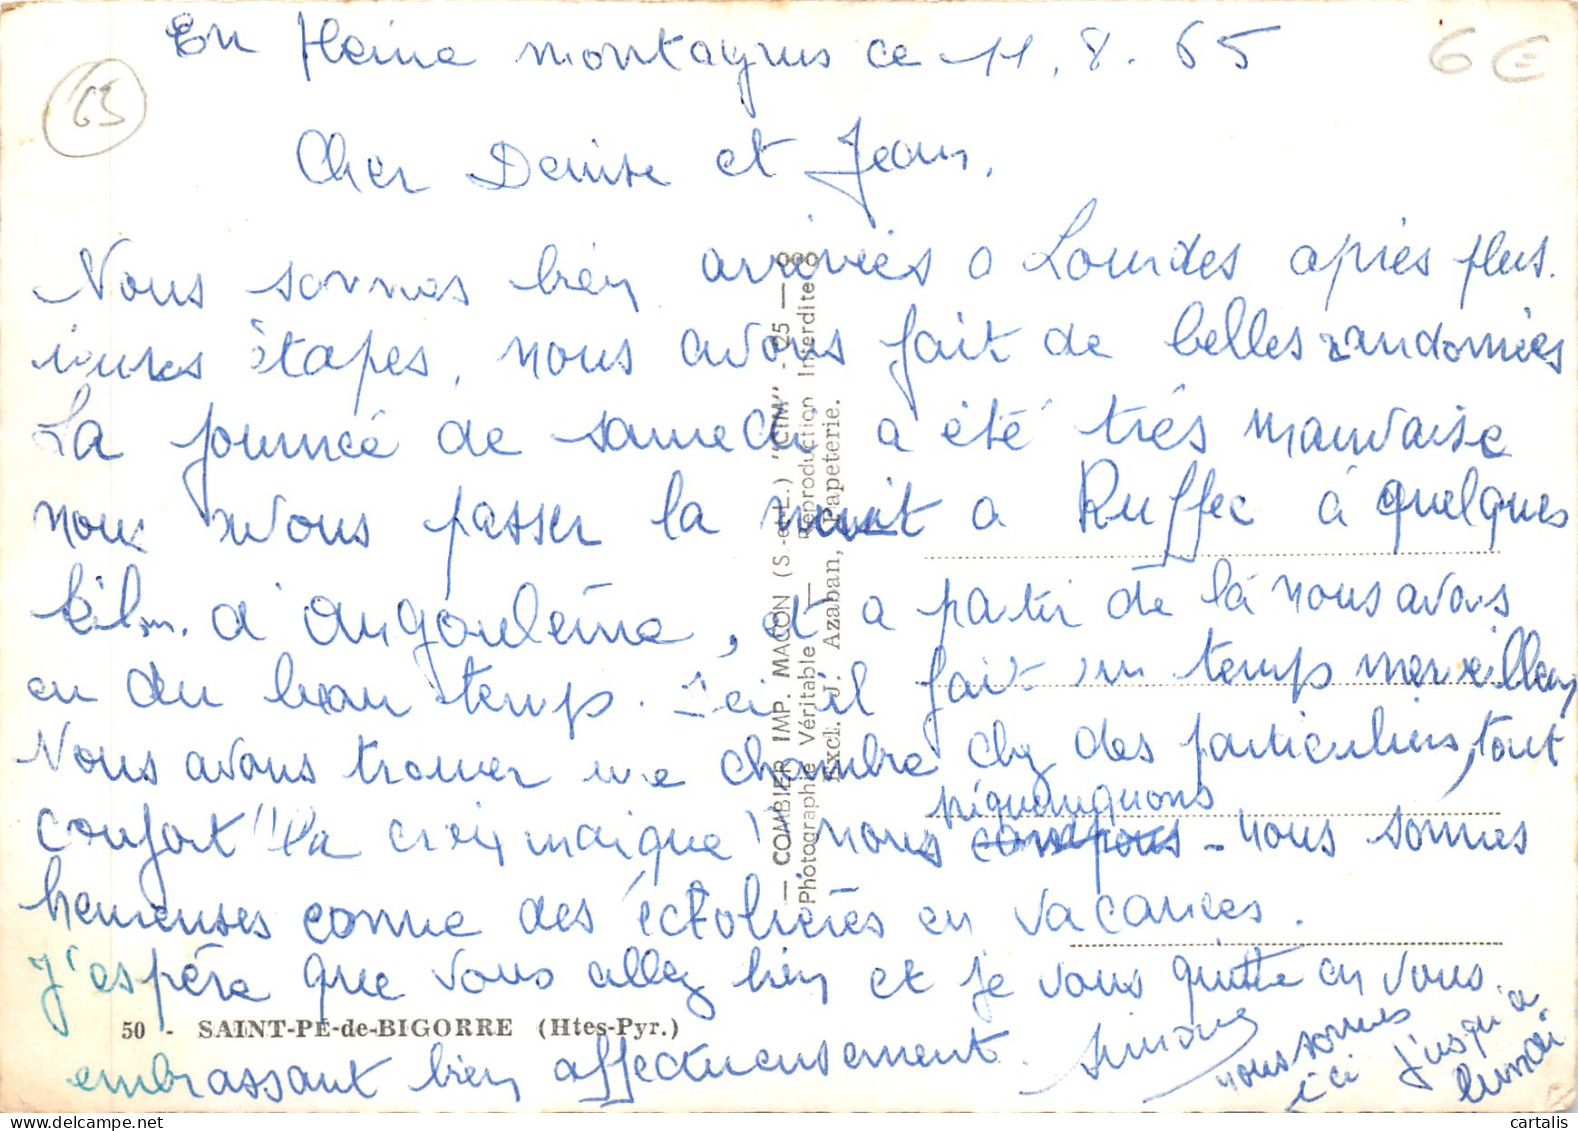 En pleine montagnes ce 11.8.65
6 €
65
Cher Denise et Jean,
Nous sommes bien arrivées a Lourdes après plus.
ieures étapes, nous avons fait de belles randonnées
La journée de samedi a été très mauvaise
nous avons passer la nuit a Ruffec à quelques
kilm. d'Angoulême, et a partir de là nous avons
eu du beau temps. Ici il fait un temps merveilleux
Nous avons trouver une chambre chez des particuliers, tout
confort "la croix maigue" nous piqueniquons - nous sommes
heureuses comme des écolières en vacances.
J'espère que vous allez bien et je vous quitte en vous
embrassant bien affectueusement. Simone
nous sommes
ici jusqu'a
lundi
50 - SAINT-PÉ-de-BIGORRE (Htes-Pyr.)
— COMBIER IMP. MACON (S.-et-L.) "CIM" - 25 —
Photographie Véritable — Reproduction Interdite
Excl. J. Azaban, Papeterie.
cartalis